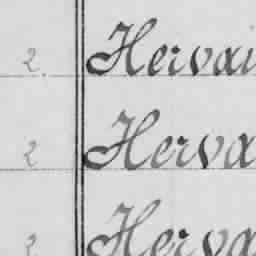 2. Hervai
2 Herva
2 Herva